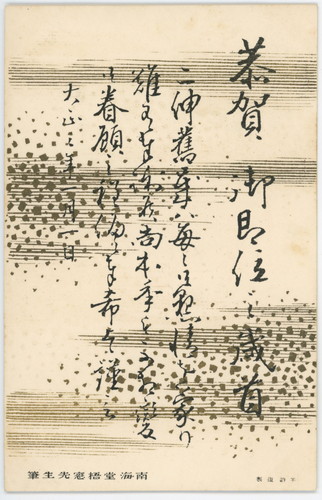 恭賀 御即位之歳首
二伸舊年ハ毎々御懇情を蒙り
難有奉謝候尚本年も不相變
御眷願之程偏ニ奉希上候 謹言
大正三年一月一日
南海堂梧窓先生筆
不許復製